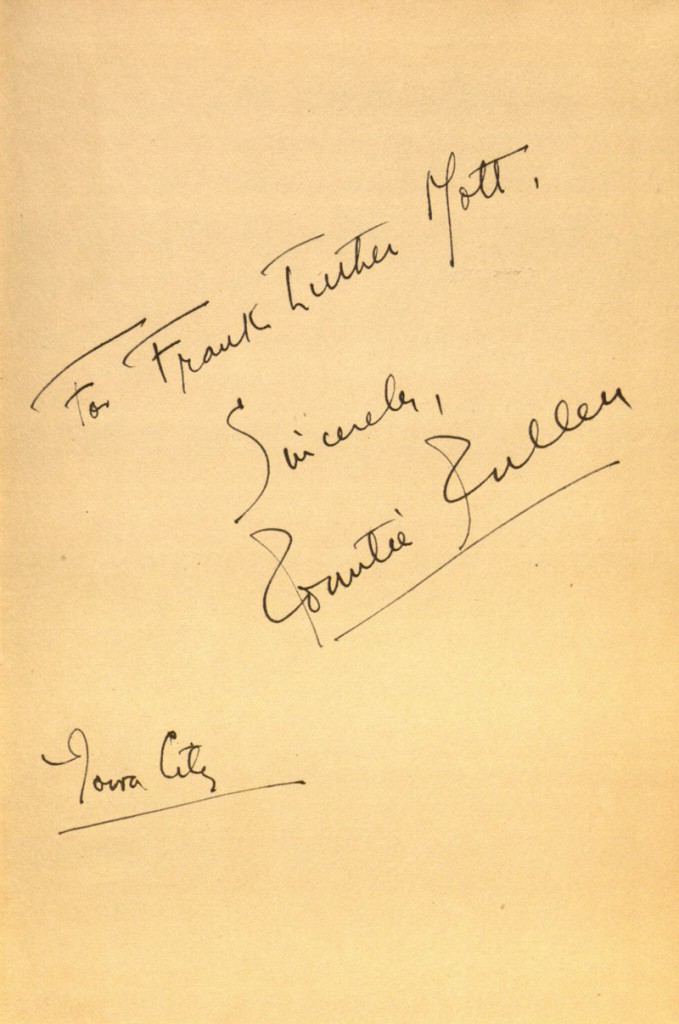 To Frank Luther Mott,
Sincerely,
Countée Cullen
Iowa City